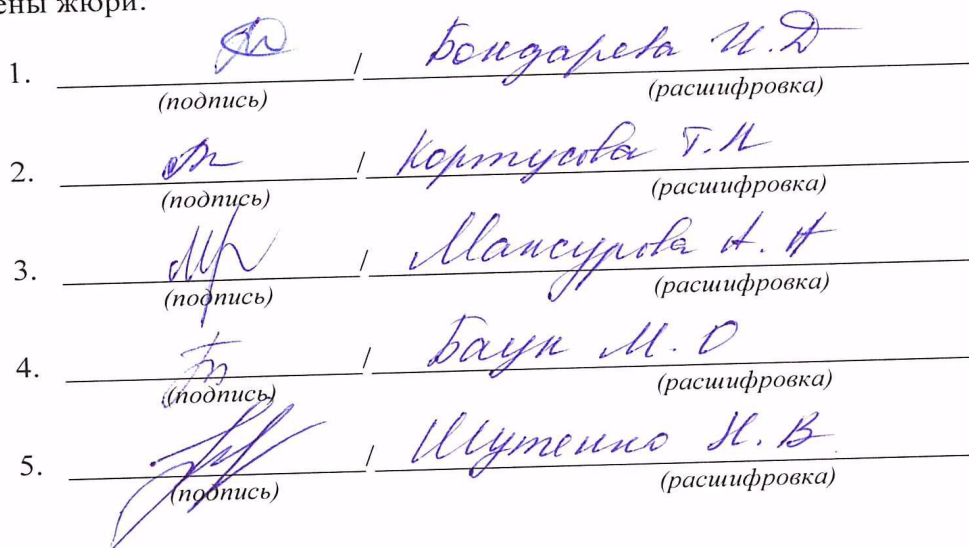 ены жюри:
1. / Бондарева И.Д
(подпись) (расшифровка)
2. / Кортусова Т.И
(подпись) (расшифровка)
3. / Мансурова А. А
(подпись) (расшифровка)
4. / Баун М. О
(подпись) (расшифровка)
5. / Шутенко Н. В
(подпись) (расшифровка)